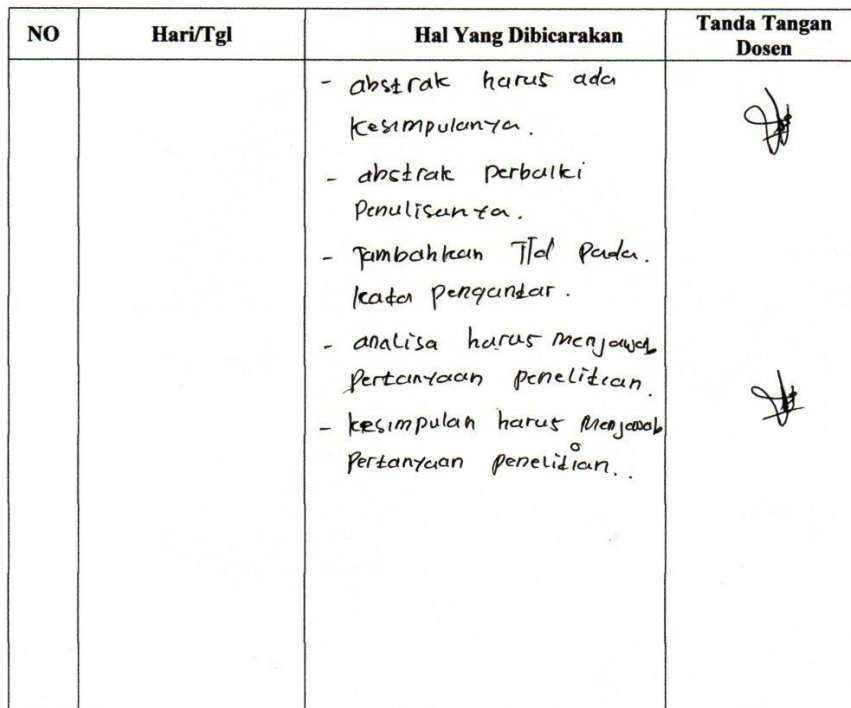 NO Hari/Tgl Hal Yang Dibicarakan Tanda Tangan
Dosen
- abstrak harus ada
kesimpulanya.
- abstrak perbaiki
penulisanya.
- Tambahkan Ttd pada.
kata pengantar.
- analisa harus menjawab
pertanyaan penelitian.
- kesimpulan harus menjawab
pertanyaan penelitian..